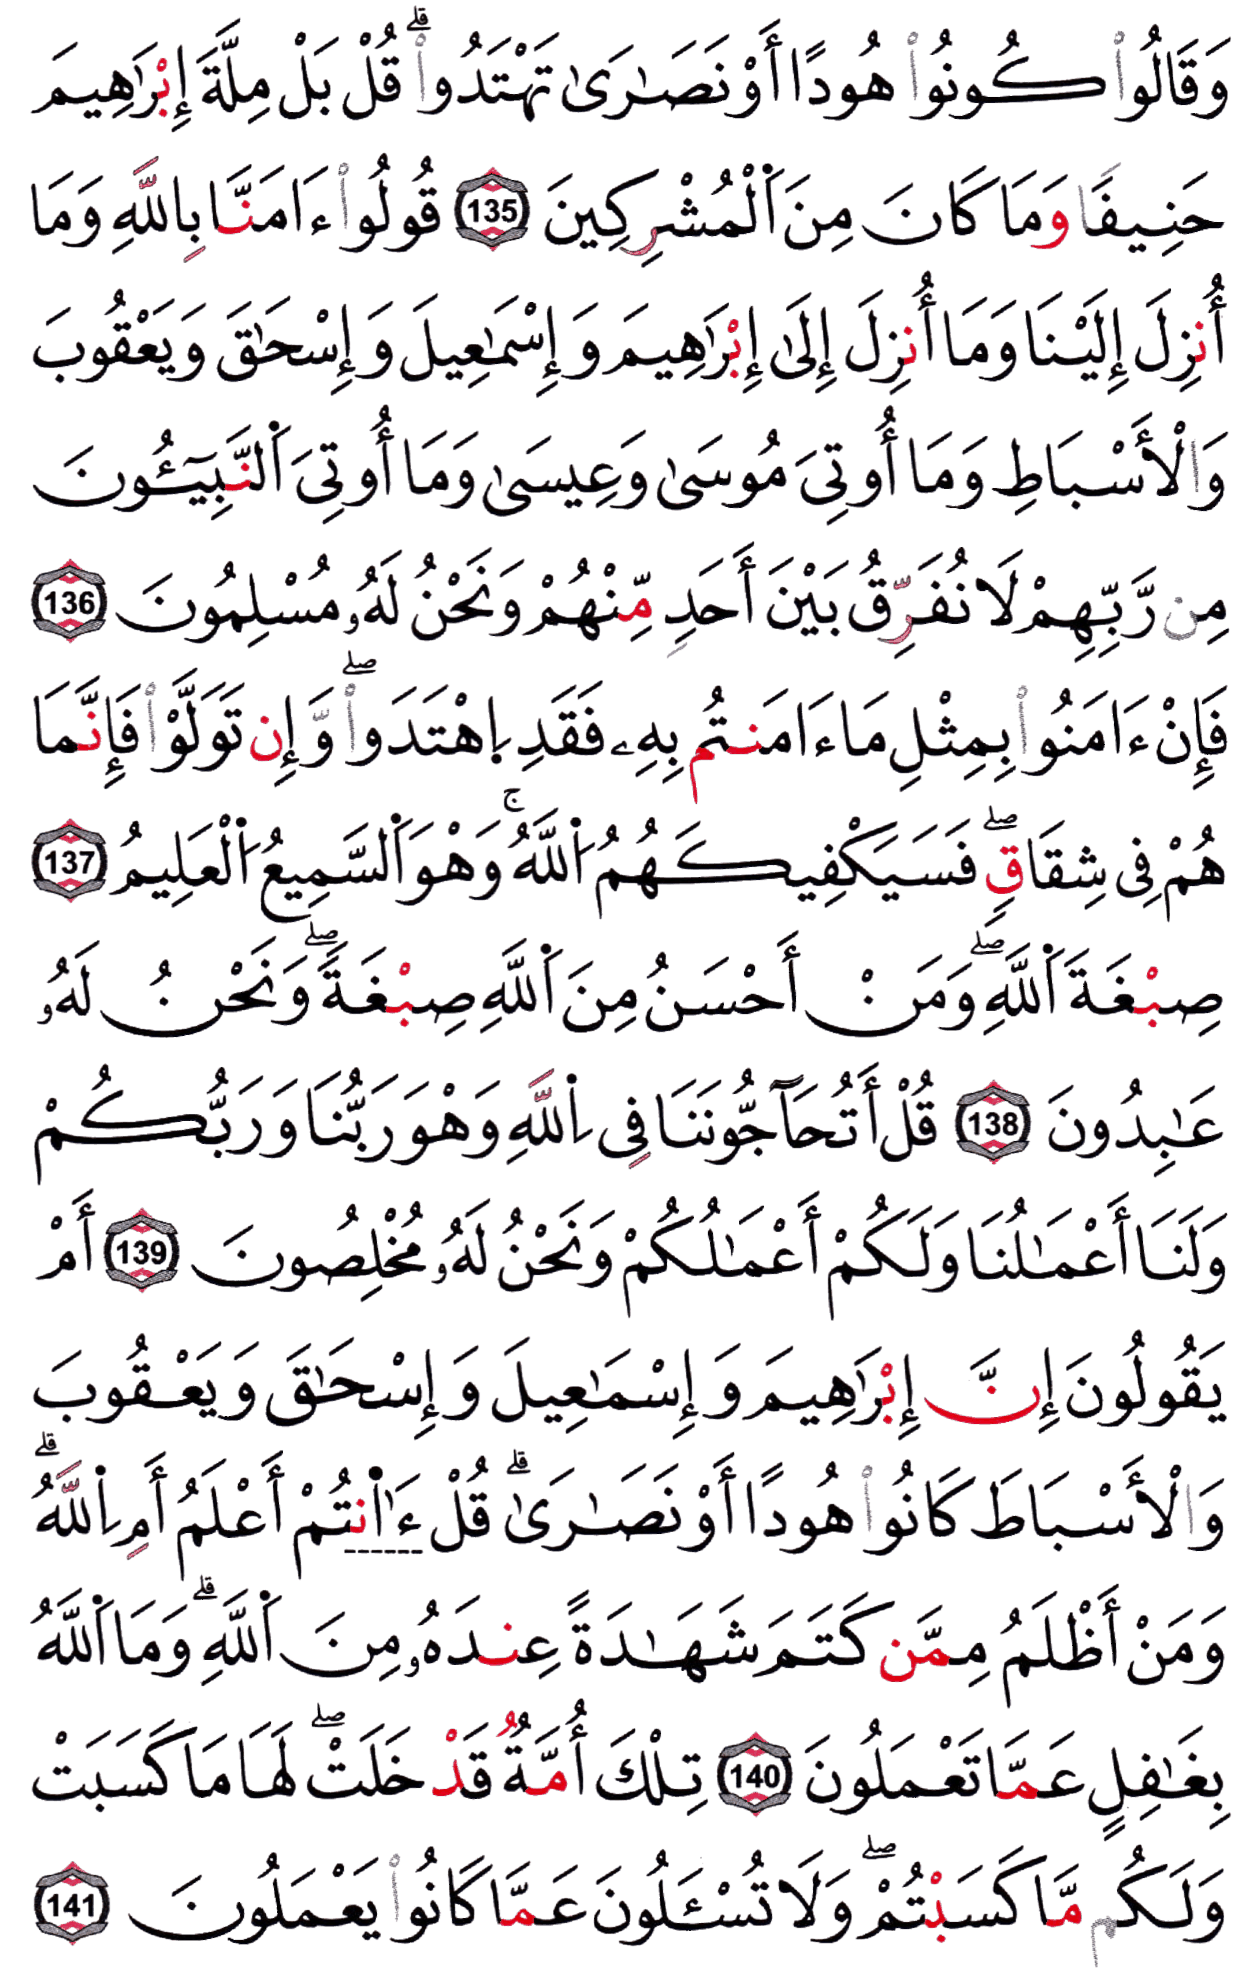 وَقَالُوا۟ كُونُوا۟ هُودًا أَوْ نَصَٰرَىٰ تَهْتَدُوا۟ ۗ قُلْ بَلْ مِلَّةَ إِبْرَٰهِيمَ
حَنِيفًا وَمَا كَانَ مِنَ اَ۬لْمُشْرِكِينَ 135 قُولُوا۟ ءَامَنَّا بِاللَّهِ وَمَا
أُنزِلَ إِلَيْنَا وَمَا أُنزِلَ إِلَىٰ إِبْرَٰهِيمَ وَإِسْمَٰعِيلَ وَإِسْحَٰقَ وَيَعْقُوبَ
وَالْأَسْبَاطِ وَمَا أُوتِيَ مُوسَىٰ وَعِيسَىٰ وَمَا أُوتِيَ اَ۬لنَّبِيٓـُٔونَ
مِن رَّبِّهِمْ لَا نُفَرِّقُ بَيْنَ أَحَدٍ مِّنْهُمْ وَنَحْنُ لَهُۥ مُسْلِمُونَ 136
فَإِنْ ءَامَنُوا۟ بِمِثْلِ مَا ءَامَنتُم بِهِۦ فَقَدِ اِ۪هْتَدَوا۟ ۖ وَّإِن تَوَلَّوْا۟ فَإِنَّمَا
هُمْ فِي شِقَاقٍ ۖ فَسَيَكْفِيكَهُمُ اُ۬للَّهُ ۚ وَهْوَ اَ۬لسَّمِيعُ اُ۬لْعَلِيمُ 137
صِبْغَةَ اَ۬للَّهِ ۖ وَمَنْ أَحْسَنُ مِنَ اَ۬للَّهِ صِبْغَةً ۖ وَنَحْنُ لَهُۥ
عَٰبِدُونَ 138 قُلْ أَتُحَآجُّونَنَا فِي اِ۬للَّهِ وَهْوَ رَبُّنَا وَرَبُّكُمْ
وَلَنَا أَعْمَٰلُنَا وَلَكُمْ أَعْمَٰلُكُمْ وَنَحْنُ لَهُۥ مُخْلِصُونَ 139 أَمْ
يَقُولُونَ إِنَّ إِبْرَٰهِيمَ وَإِسْمَٰعِيلَ وَإِسْحَٰقَ وَيَعْقُوبَ
وَالْأَسْبَاطَ كَانُوا۟ هُودًا أَوْ نَصَٰرَىٰ ۗ قُلْ ءَا۬نتُمْ أَعْلَمُ أَمِ اِ۬للَّهُ ۗ
وَمَنْ أَظْلَمُ مِمَّن كَتَمَ شَهَٰدَةً عِندَهُۥ مِنَ اَ۬للَّهِ ۗ وَمَا اَ۬للَّهُ
بِغَٰفِلٍ عَمَّا تَعْمَلُونَ 140 تِلْكَ أُمَّةٌ قَدْ خَلَتْ ۖ لَهَا مَا كَسَبَتْ
وَلَكُم مَّا كَسَبْتُمْ ۖ وَلَا تُسْـَٔلُونَ عَمَّا كَانُوا۟ يَعْمَلُونَ 141